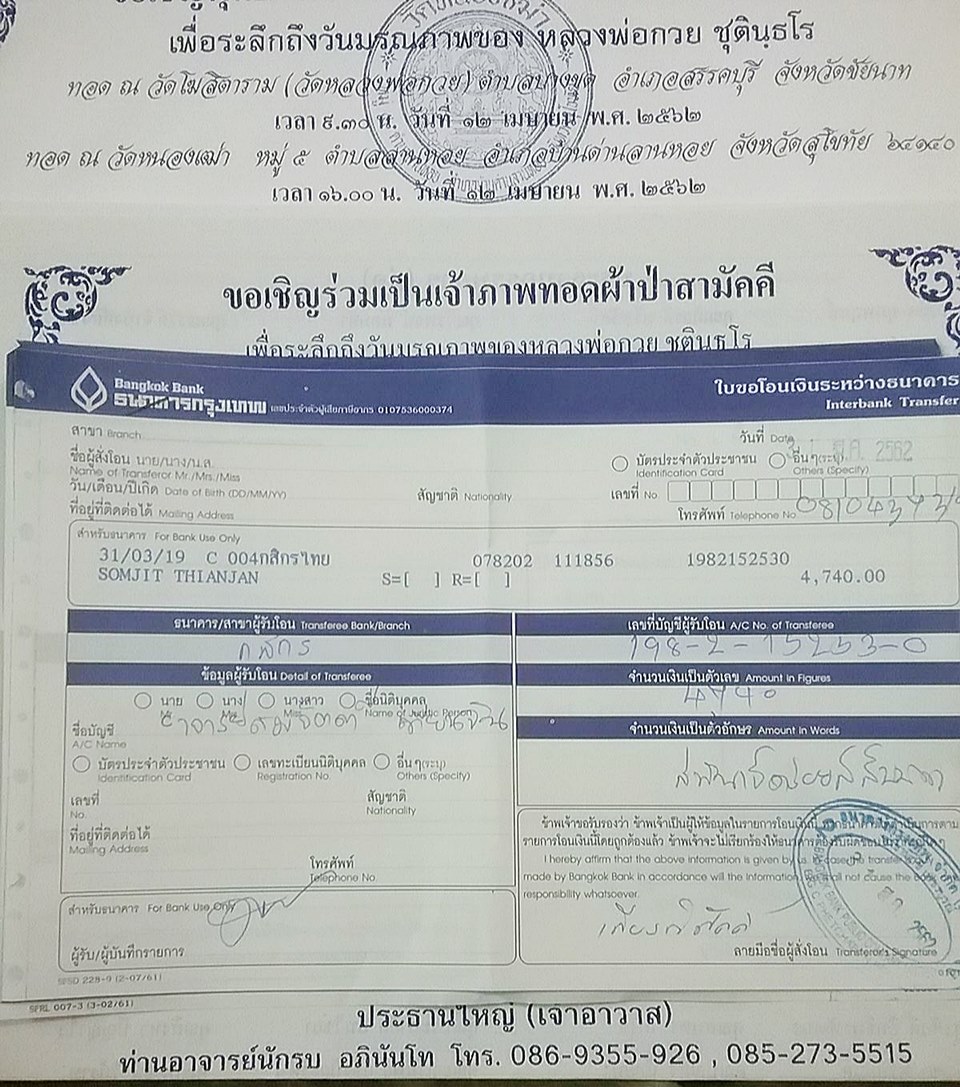 เพื่อระลึกถึงวันมรณภาพของ หลวงพ่อกวย ชุตินฺธโร
ทอด ณ วัดโฆสิตาราม (วัดหลวงพ่อกวย) ตำบลบางขุด อำเภอสรรคบุรี จังหวัดชัยนาท
เวลา ๙.๓๐ น. วันที่ ๑๒ เมษายน พ.ศ. ๒๕๖๒
ทอด ณ วัดหนองเฒ่า หมู่ ๕ ตำบลลานหอย อำเภอบ้านด่านลานหอย จังหวัดสุโขทัย ๖๔๑๔๐
เวลา ๑๖.๐๐ น. วันที่ ๑๒ เมษายน พ.ศ. ๒๕๖๒
ขอเชิญร่วมเป็นเจ้าภาพทอดผ้าป่าสามัคคี
เพื่อระลึกถึงวันมรณภาพของหลวงพ่อกวย ชุตินฺธโร
Bangkok Bank
ธนาคารกรุงเทพ เลขประจำตัวผู้เสียภาษีอากร 0107536000374
ใบขอโอนเงินระหว่างธนาคาร
Interbank Transfer
สาขา Branch
วันที่ Date 2562
ชื่อผู้สั่งโอน นาย/นาง/น.ส.
Name of Transferor Mr./Mrs./Miss
บัตรประจำตัวประชาชน อื่นๆ(ระบุ)
Identification Card Others (Specify)
วัน/เดือน/ปีเกิด Date of Birth (DD/MM/YY) สัญชาติ Nationality เลขที่ No.
ที่อยู่ที่ติดต่อได้ Mailing Address โทรศัพท์ Telephone No.
สำหรับธนาคาร For Bank Use Only
31/03/19 C 004กสิกรไทย 078202 111856 1982152530
SOMJIT THIANJAN S=[ ] R=[ ] 4,740.00
ธนาคาร/สาขาผู้รับโอน Transferee Bank/Branch
กสิกร
เลขที่บัญชีผู้รับโอน A/C No. of Transferee
198-2-15253-0
ข้อมูลผู้รับโอน Detail of Transferee
จำนวนเงินเป็นตัวเลข Amount in Figures
4740
นาย นาง นางสาว ชื่อนิติบุคคล
Mr. Mrs. Miss Name of Juristic Person
ชื่อบัญชี
A/C Name
จำนวนเงินเป็นตัวอักษร Amount in Words
บัตรประจำตัวประชาชน เลขทะเบียนนิติบุคคล อื่นๆ(ระบุ)
Identification Card Registration No. Others (Specify)
เลขที่ สัญชาติ
No. Nationality
ที่อยู่ที่ติดต่อได้
Mailing Address
โทรศัพท์
Telephone No.
ข้าพเจ้าขอรับรองว่า ข้าพเจ้าเป็นผู้ให้ข้อมูลในรายการโอนเงิน
รายการโอนเงินนี้โดยถูกต้องแล้ว ข้าพเจ้าจะไม่เรียกร้องให้ธนาคารต้องรับผิดชอบ
I hereby affirm that the above information is given by
made by Bangkok Bank in accordance will the information, shall not cause the
responsibility whatsoever.
สำหรับธนาคาร For Bank Use Only
ผู้รับ/ผู้บันทึกรายการ
ลายมือชื่อผู้สั่งโอน Transferor's Signature
SFSD 228-9 (2-07/61)
SFRL 007-3 (3-02/61)
ประธานใหญ่ (เจ้าอาวาส)
ท่านอาจารย์นักรบ อภินันโท โทร. 086-9355-926 , 085-273-5515